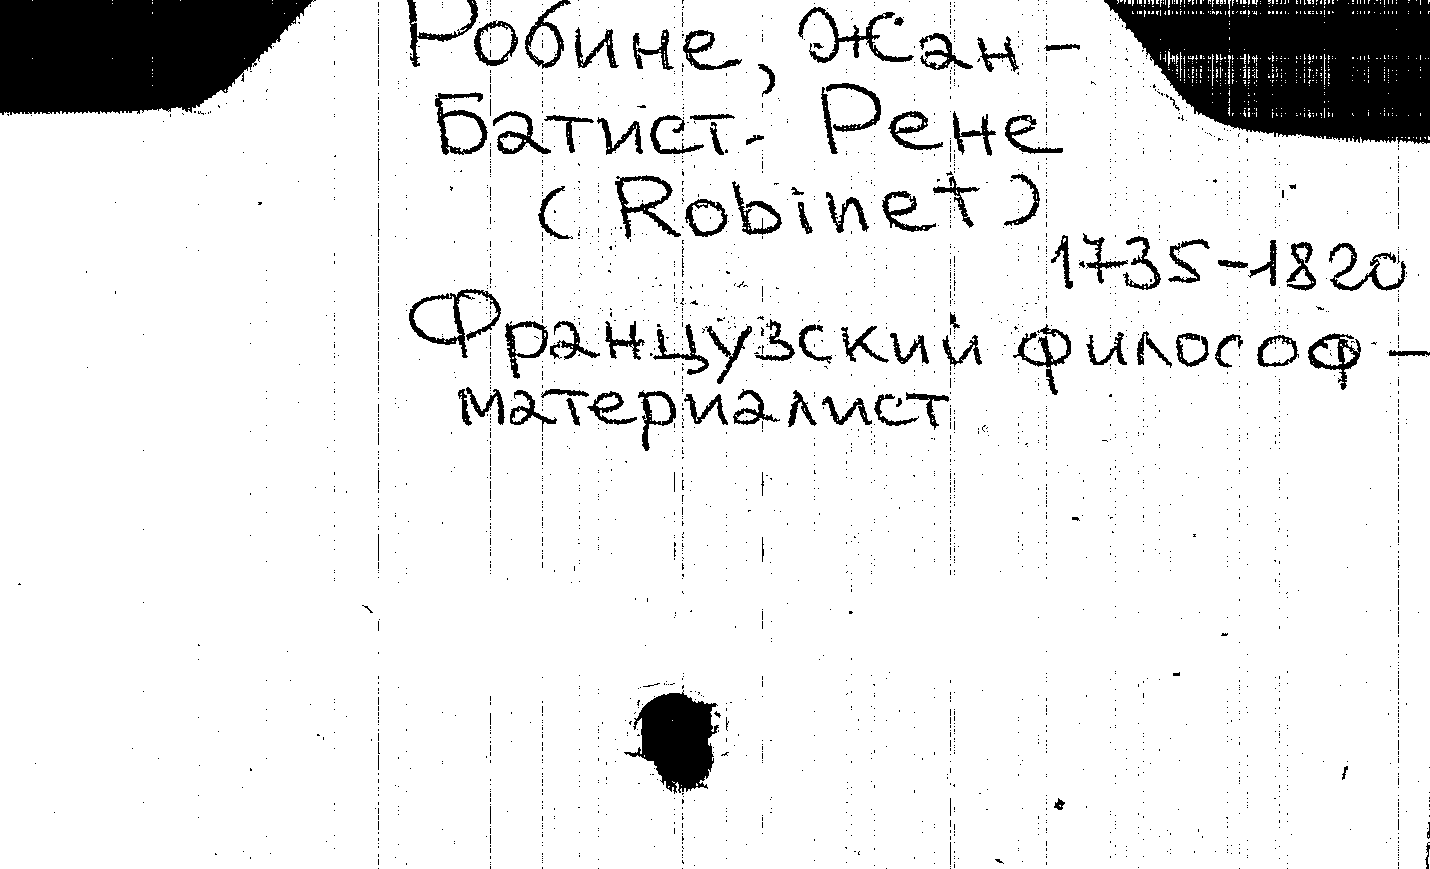 Робине, Жан-
Батист-Рене
(Robinet)
1735-1820
Французский философ-
материалист